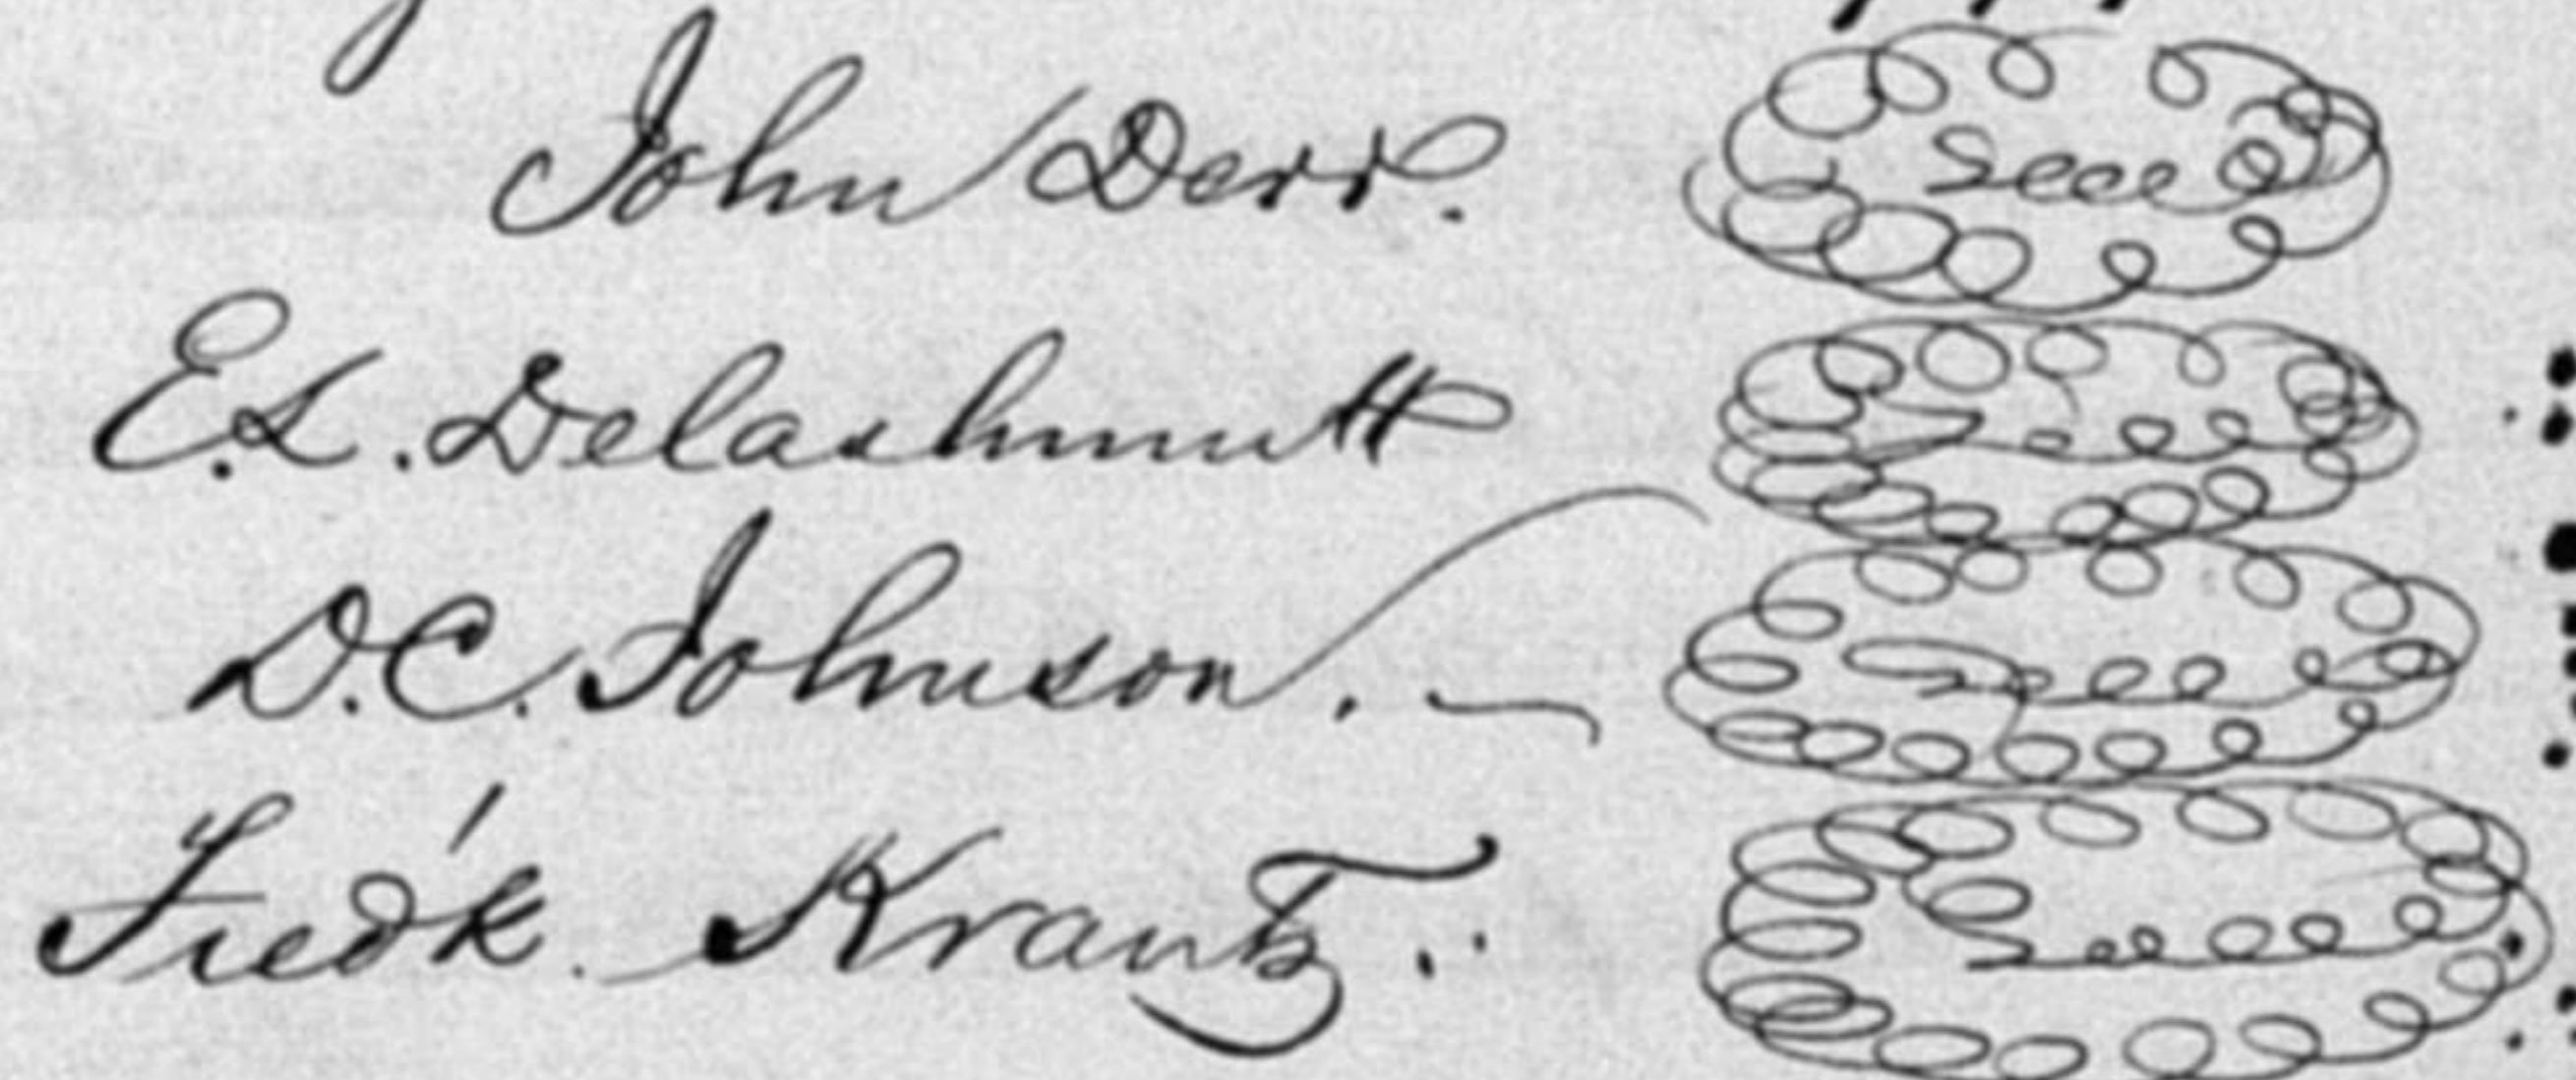 John Derr. Seal
E.L. Delashmutt Seal
D.C. Johnson. Seal
Fred'k. Krantz. Seal